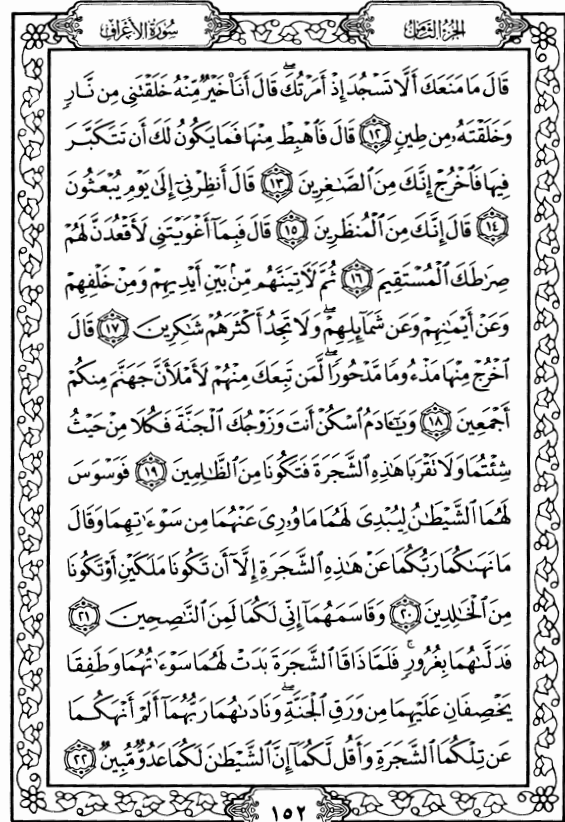 الجزء الثامن
سورة الأعراف
قَالَ مَا مَنَعَكَ أَلَّا تَسْجُدَ إِذْ أَمَرْتُكَ ۖ قَالَ أَنَا۠ خَيْرٌ مِّنْهُ خَلَقْتَنِى مِن نَّارٍ
وَخَلَقْتَهُۥ مِن طِينٍ ١٢ قَالَ فَٱهْبِطْ مِنْهَا فَمَا يَكُونُ لَكَ أَن تَتَكَبَّرَ
فِيهَا فَٱخْرُجْ إِنَّكَ مِنَ ٱلصَّٰغِرِينَ ١٣ قَالَ أَنظِرْنِىٓ إِلَىٰ يَوْمِ يُبْعَثُونَ
١٤ قَالَ إِنَّكَ مِنَ ٱلْمُنظَرِينَ ١٥ قَالَ فَبِمَآ أَغْوَيْتَنِى لَأَقْعُدَنَّ لَهُمْ
صِرَٰطَكَ ٱلْمُسْتَقِيمَ ١٦ ثُمَّ لَءَاتِيَنَّهُم مِّنۢ بَيْنِ أَيْدِيهِمْ وَمِنْ خَلْفِهِمْ
وَعَنْ أَيْمَٰنِهِمْ وَعَن شَمَآئِلِهِمْ ۖ وَلَا تَجِدُ أَكْثَرَهُمْ شَٰكِرِينَ ١٧ قَالَ
ٱخْرُجْ مِنْهَا مَذْءُومًا مَّدْحُورًا ۖ لَّمَن تَبِعَكَ مِنْهُمْ لَأَمْلَأَنَّ جَهَنَّمَ مِنكُمْ
أَجْمَعِينَ ١٨ وَيَٰٓـَٔادَمُ ٱسْكُنْ أَنتَ وَزَوْجُكَ ٱلْجَنَّةَ فَكُلَا مِنْ حَيْثُ
شِئْتُمَا وَلَا تَقْرَبَا هَٰذِهِ ٱلشَّجَرَةَ فَتَكُونَا مِنَ ٱلظَّٰلِمِينَ ١٩ فَوَسْوَسَ
لَهُمَا ٱلشَّيْطَٰنُ لِيُبْدِىَ لَهُمَا مَا وُۥرِىَ عَنْهُمَا مِن سَوْءَٰتِهِمَا وَقَالَ
مَا نَهَىٰكُمَا رَبُّكُمَا عَنْ هَٰذِهِ ٱلشَّجَرَةِ إِلَّآ أَن تَكُونَا مَلَكَيْنِ أَوْ تَكُونَا
مِنَ ٱلْخَٰلِدِينَ ٢٠ وَقَاسَمَهُمَآ إِنِّى لَكُمَا لَمِنَ ٱلنَّٰصِحِينَ ٢١
فَدَلَّىٰهُمَا بِغُرُورٍ ۚ فَلَمَّا ذَاقَا ٱلشَّجَرَةَ بَدَتْ لَهُمَا سَوْءَٰتُهُمَا وَطَفِقَا
يَخْصِفَانِ عَلَيْهِمَا مِن وَرَقِ ٱلْجَنَّةِ ۖ وَنَادَىٰهُمَا رَبُّهُمَآ أَلَمْ أَنْهَكُمَا
عَن تِلْكُمَا ٱلشَّجَرَةِ وَأَقُل لَّكُمَآ إِنَّ ٱلشَّيْطَٰنَ لَكُمَا عَدُوٌّ مُّبِينٌ ٢٢
١٥٢